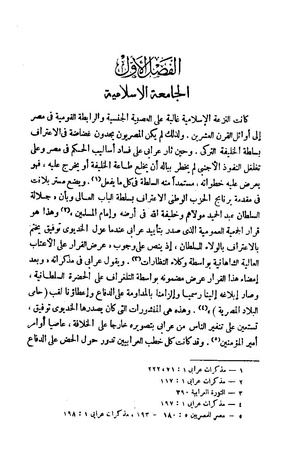 الفصل الأول
الجامعة الإسلامية
كانت النزعة الإسلامية غالبة على العصبية الجنسية والرابطة القومية فى مصر
إلى أوائل القرن العشرين . ولذلك لم يكن المصريون يجدون غضاضة فى الاعتراف
بسلطة الخليفة التركى . وحين ثار عرابى على فساد أساليب الحكم فى مصر وعلى
تغلغل النفوذ الأجنبى لم يخطر بباله أن يخلع طاعة الخليفة أو يخرج عليه ، فهو
يعرض عليه خطواته ، مستمداً منه السلطة فى كل ما يفعل (١) . ويضع مستر بلانت
فى مقدمة برنامج الحزب الوطنى الاعتراف بسلطة الباب العالى وبأن « جلالة
السلطان عبد الحميد مولاهم وخليفة الله فى أرضه وإمام المسلمين » (٢) وهذا هو
قرار الجمعية العمومية الذى صدر بتأييد عرابى عندما عزل الخديوى توفيق يختم
بالاعتراف بالولاء للسلطان ، إذ ينص على وجوب « عرض القرار على الأعتاب
العالية الشاهانية بواسطة وكلاء النظارات » (٣) . ويقول عرابى فى مذكراته « وبعد
إمضاء هذا القرار عرض مضمونه بواسطة التلغراف على الحضرة السلطانية ،
وصار إبلاغه إلينا رسمياً وإلزامنا بالمداومة على الدفاع وإعطاؤنا لقب (حامى
البلاد المصرية ) » (٤) . وهذه هى المنشورات التى كان يصدرها الخديوى توفيق ،
تستمين على تنفير الناس من عرابى بتصويره خارجا على الخلافة ، عاصيا أوامر
أمير المؤمنين (٥) . وقد كانت كل خطب العرابيين تدور حول الحض على الدفاع
١ — مذكرات عرابى ١ : ٧١ ، ٢٢٢
٢ — مذكرات عرابى ١ : ١١٧
٣ — الثورة العرابية ٣٩٠
٤ — مذكرات عرابى ١ : ١٩٧
٥ — مصر للمصريين ٥ : ١٨٠ — ١٩٣ ، مذكرات عرابى ١ : ١٩٨